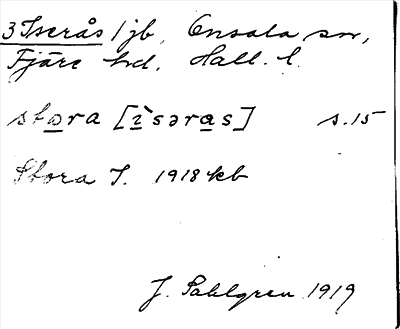 3 Iserås / jb, Onsala sn,
Fjäre hd. Hall. l.
stora [ì`səras] s. 15
Stora I. 1918 kb
J. Sahlgren 1919